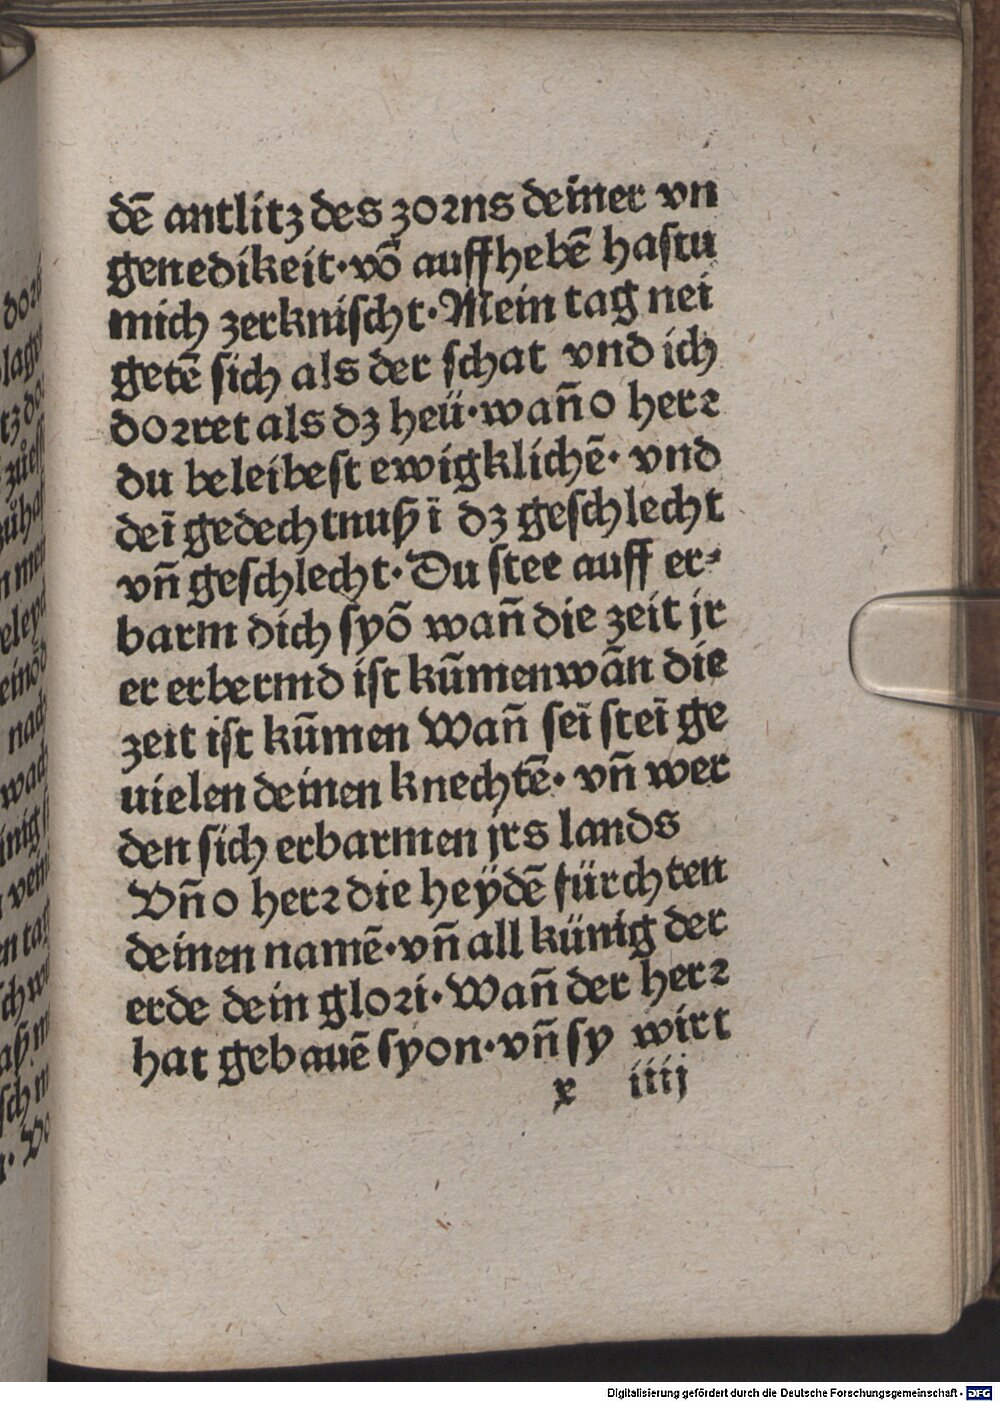 dē antlitz des zorns deiner vn
genedikeit·vō auffhebē hastu
mich zerknischt·Mein tag nei
getē sich als der schat vnd ich
dorret als dz heü·wañ o herr
du beleibest ewigklichē· vnd
deī gedechtnuß ī dz geschlecht
vñ geschlecht·Du stee auff er⸗
barm dich syō wañ die zeit jr
er erbermd ist kūmen wān die
zeit ist kūmen Wañ seī steī ge
uielen deinen knechtē· vñ wer
den sich erbarmen jrs lands
Vñ o herr die heÿdē fürchten
deinen namē·vñ all künig der
erde dein glori·Wañ der herr
hat gebauē syon·vñ sy wirt
x iiij
Digitalisierung gefördert durch die Deutsche Forschungsgemeinschaft · DFG